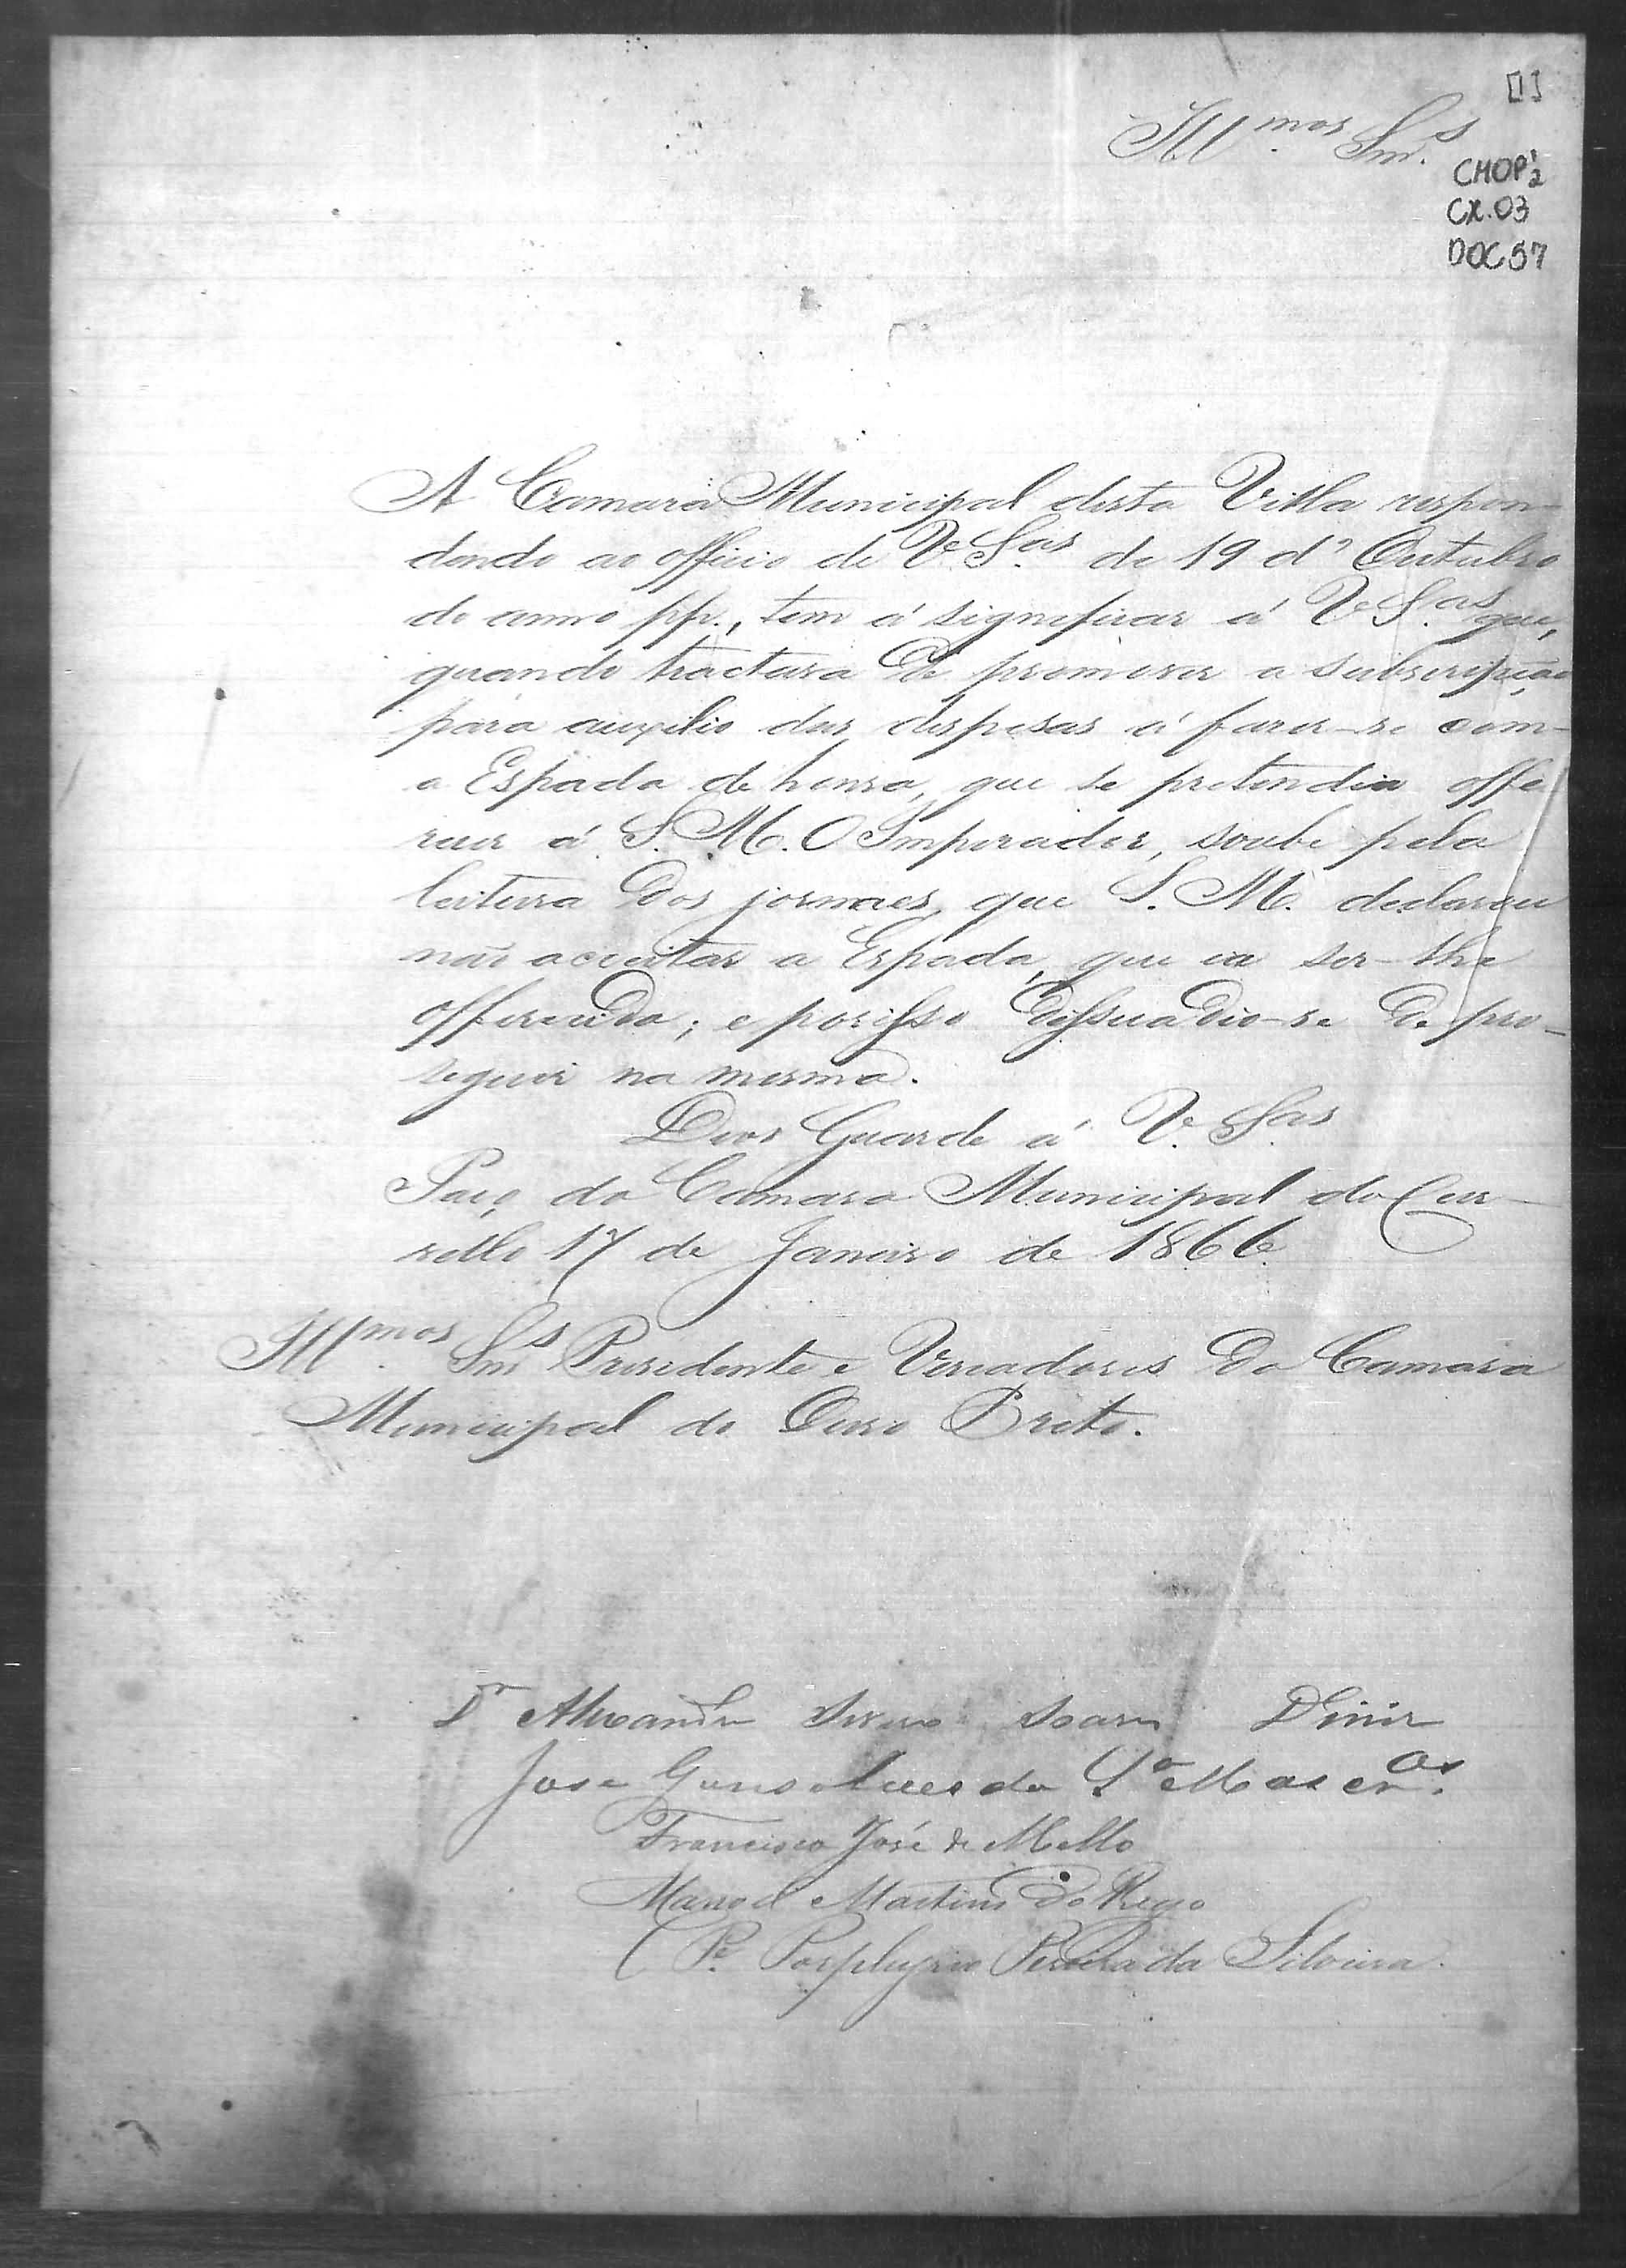 [1]
Ill.mos Snr.s
CMOP 1/2
CX. 03
DOC 57
A Camara Municipal desta Villa respon-
dendo ao officio de V.e S.as de 19 d'Outubro
do anno pp., tem á significar á V.e S.as que,
quando tractava de promover a subscripção
para auxilio das despesas á fazer-se com-
a Espada de honra, que se pretendia offe
recer á S. M. O Imperador, soube pela
leitura dos jornaes, que S. M. declarou
não acceitar a Espada, que ia ser-lhe
offerecida; e porisso dissuadio-se de pro-
seguir na mesma.
Deos Guarde á V.e S.as
Paço da Camara Municipal do Cur-
rello 17 de Janeiro de 1866
Ill.mos Snr.s Presidente e Vereadores da Camara
Municipal do Ouro Preto.
Dr Alexandre Severo Soares Diniz
Jose Gonsalves da S.a Mascr.as
Francisco José de Mello
Manoel Martins do Rego
P.e Porphyrio Pereira da Silveira.